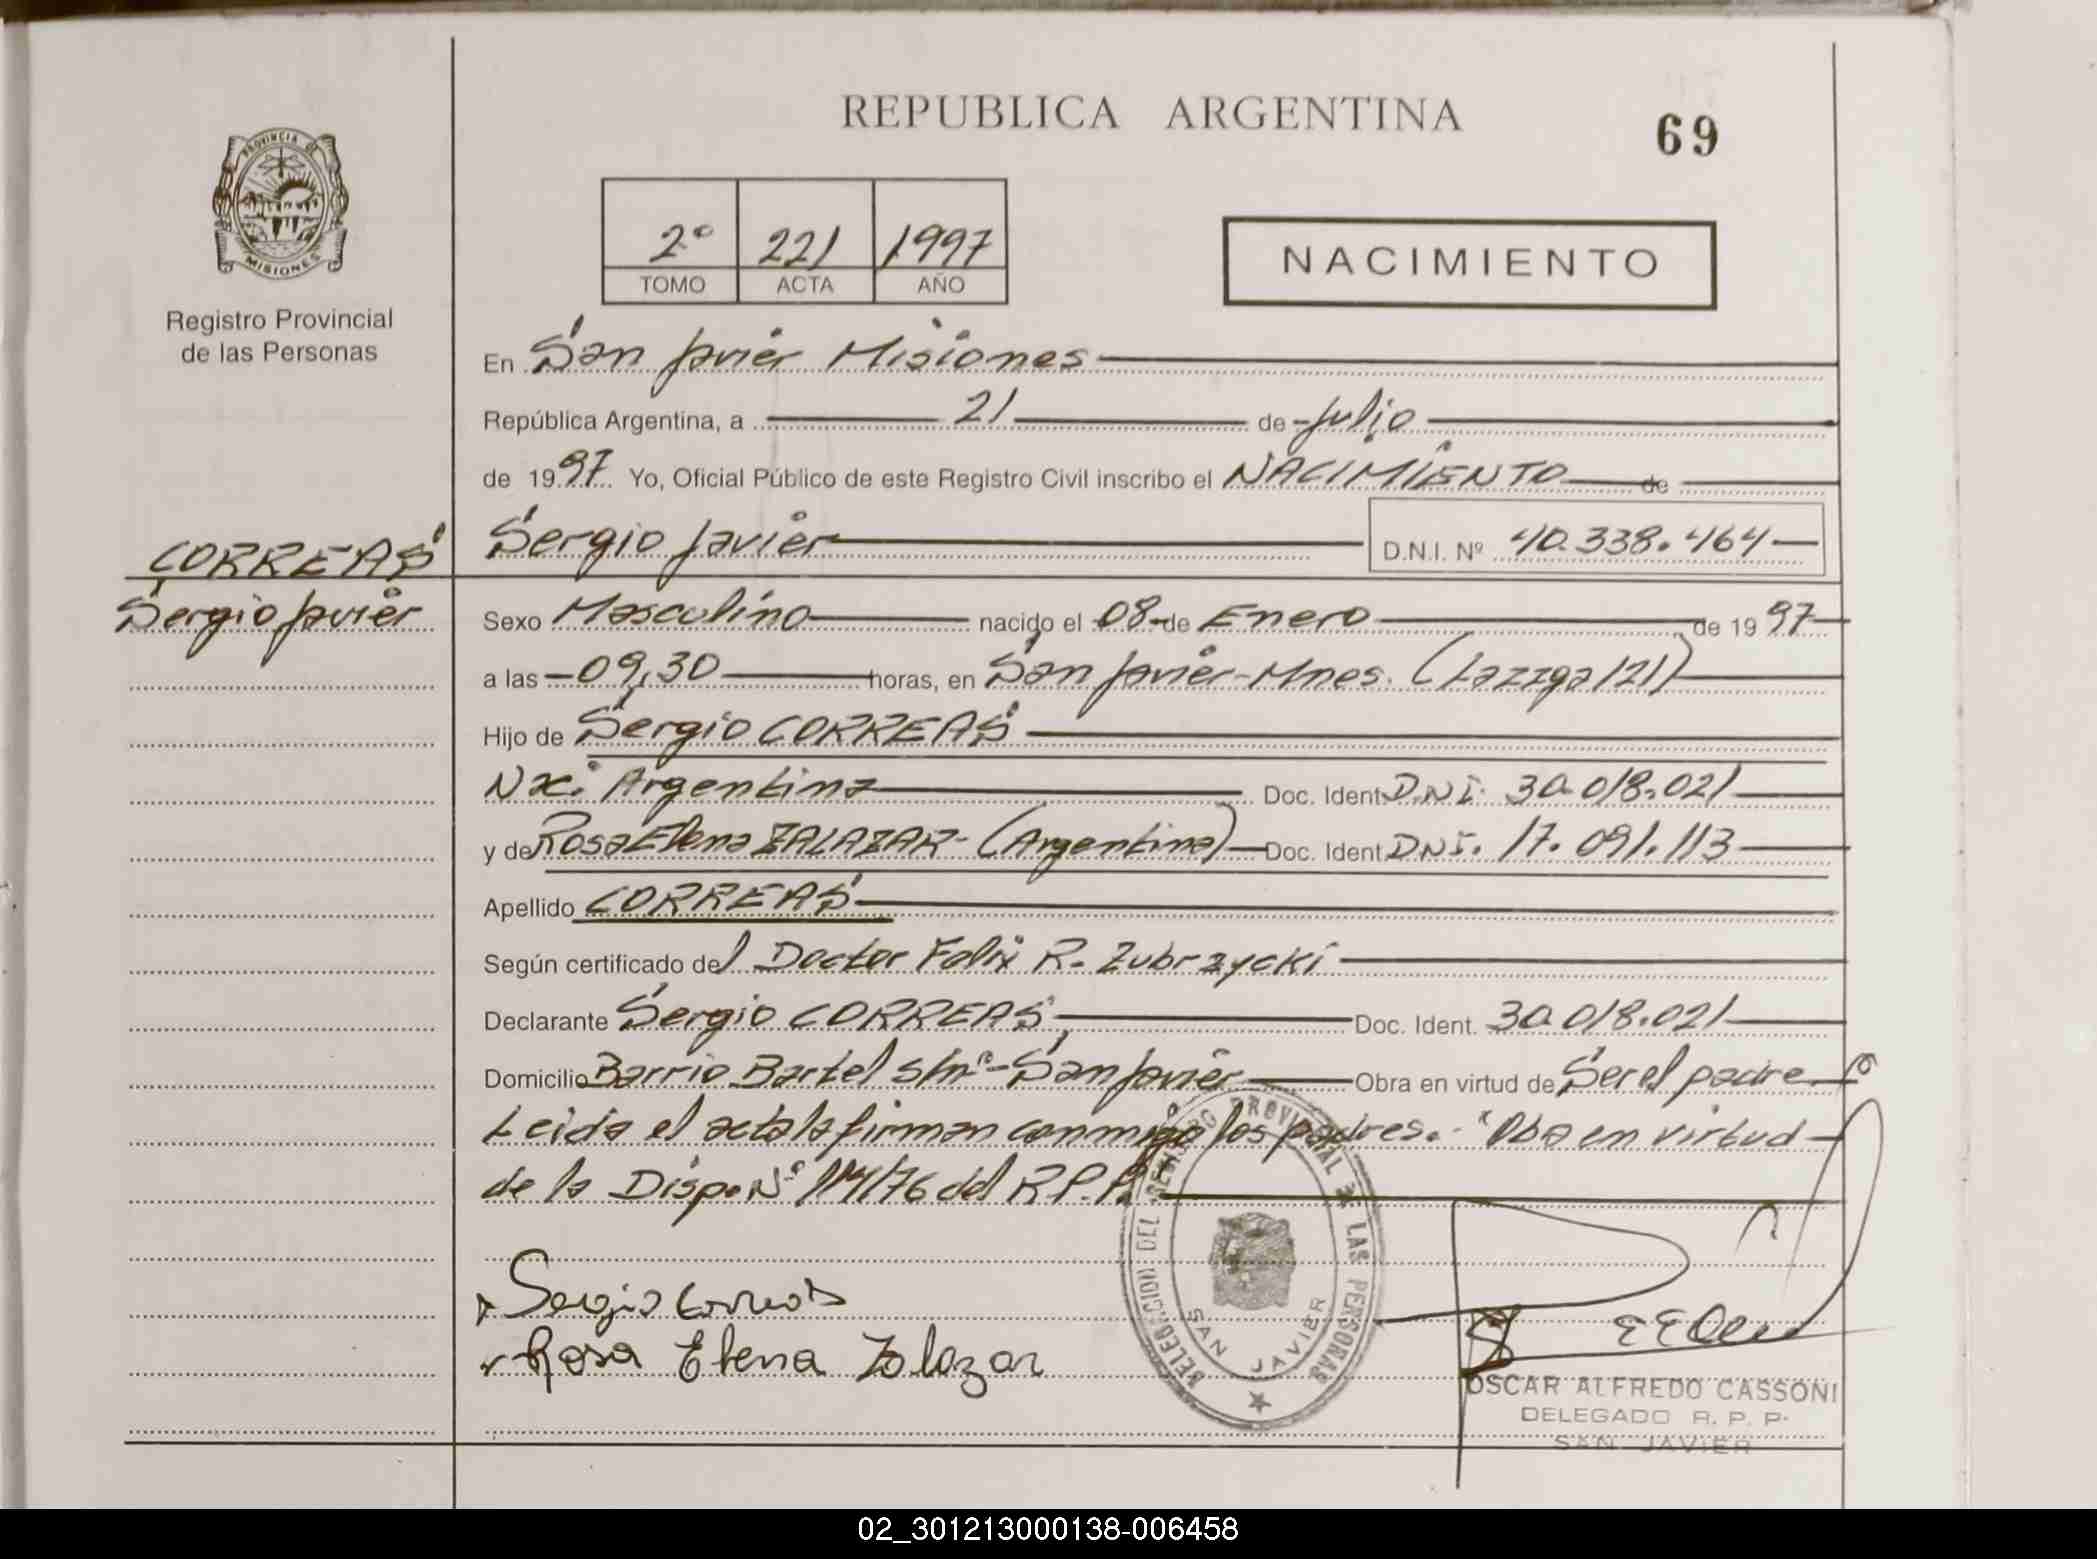 REPUBLICA ARGENTINA
69
PROVINCIA DE
MISIONES
Registro Provincial
de las Personas
2° 221 1997
TOMO ACTA AÑO
NACIMIENTO
En San Javier Misiones
República Argentina, a 21 de Julio
de 1997 Yo, Oficial Público de este Registro Civil inscribo el NACIMIENTO de
CORREAS
Sergio Javier
Sergio Javier D.N.I. Nº 40.338.464
Sexo Masculino nacido el 08 de Enero de 1997
a las 09,30 horas, en San Javier-Mnes. (        121)
Hijo de Sergio CORREAS
Nac. Argentina Doc. Ident. D.N.I. 30.018.021
y de Rosa Elena ZALAZAR - (Argentina) Doc. Ident. DNI. 17.091.113
Apellido CORREAS
Según certificado del Doctor Felix R. Zubrzycki
Declarante Sergio CORREAS Doc. Ident. 30.018.021
Domicilio Barrio Bartel s/nº - San Javier Obra en virtud de Ser el padre
Leida el acta la firman conmigo los padres. - "Oba en virtud
de la Dispo. Nº 114/76 del R.P.P.
Sergio Correas
Rosa Elena Zalazar
DELEGACION DEL REGISTRO PROVINCIAL DE LAS PERSONAS
SAN JAVIER
OSCAR ALFREDO CASSONI
DELEGADO R. P. P.
SAN JAVIER
02_301213000138-006458